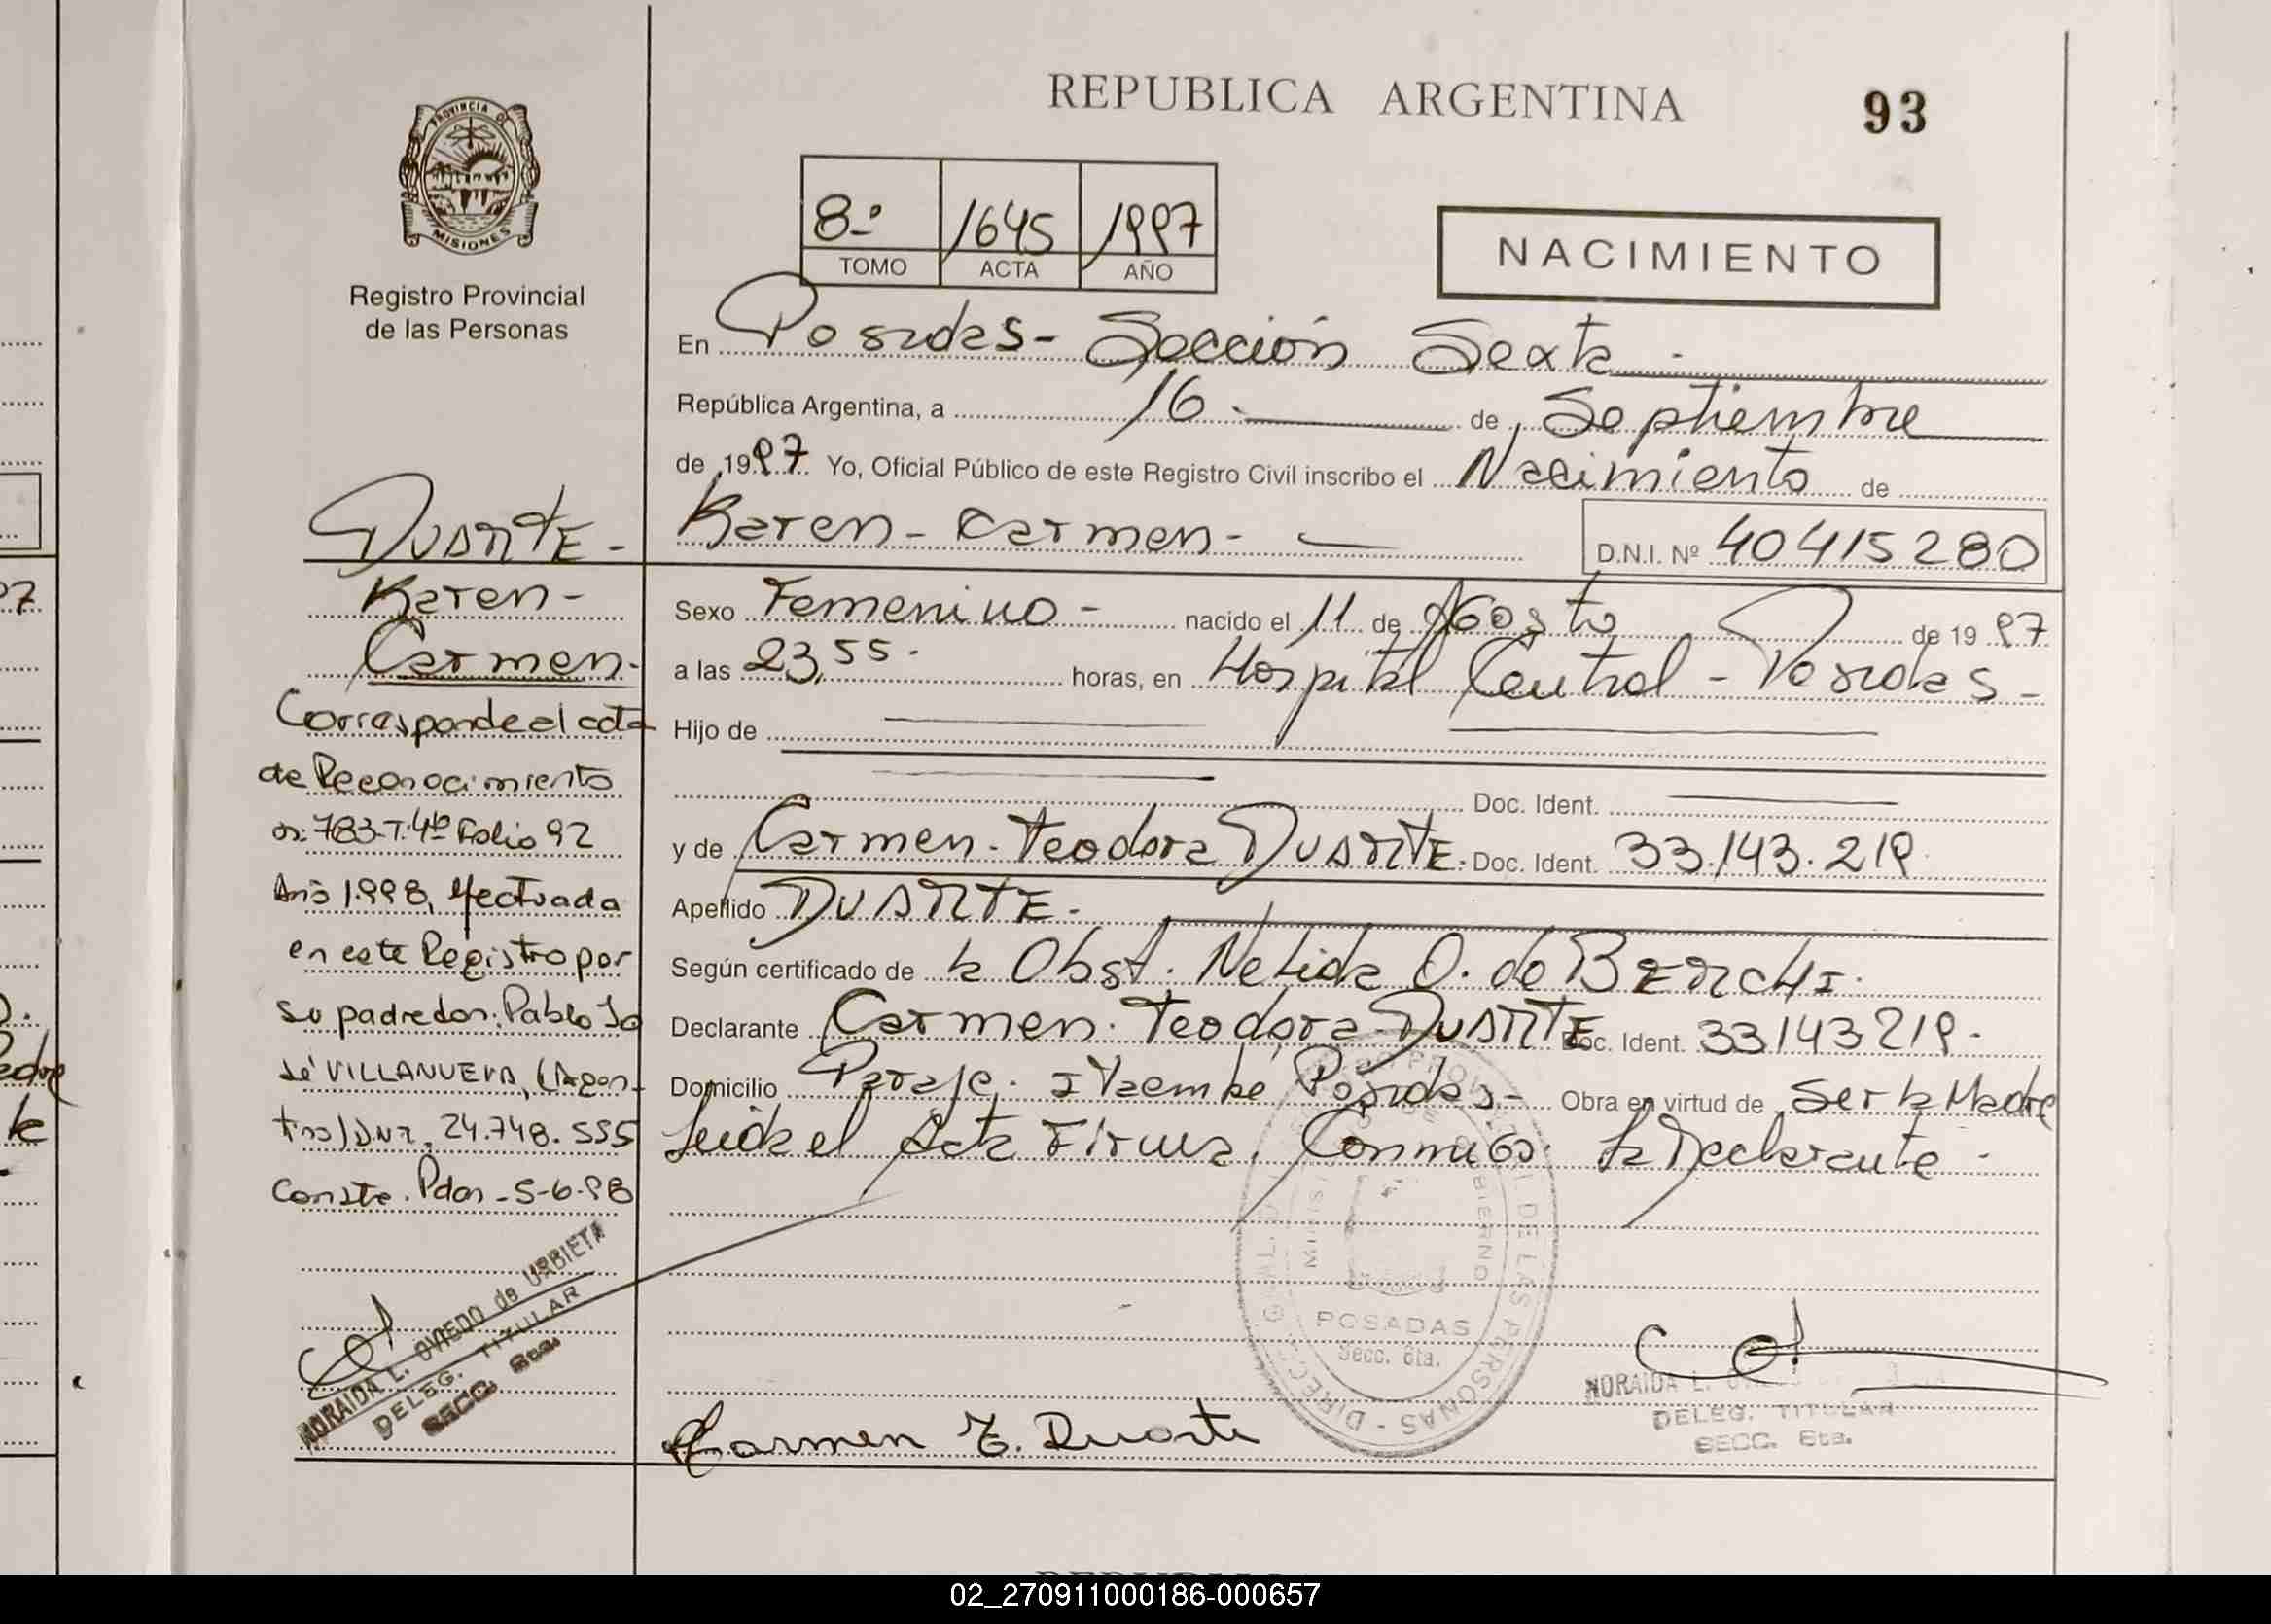 REPUBLICA ARGENTINA
93
PROVINCIA D
MISIONES
Registro Provincial
de las Personas
8º 1645 1997
TOMO ACTA AÑO
NACIMIENTO
En Posadas - Sección Sexta -
República Argentina, a 16 - de Septiembre
de 1997 Yo, Oficial Público de este Registro Civil inscribo el Nacimiento de
Karen - Carmen - D.N.I. Nº 40415280
Sexo Femenino - nacido el 11 de Agosto de 1997
a las 23,55 - horas, en Hospital Central - Posadas -
Hijo de
Doc. Ident.
y de Carmen - Teodora DUARTE. Doc. Ident. 33.143.219
Apellido DUARTE -
Según certificado de la Obst. Nelida O. de BERCHI.
Declarante Carmen. Teodora DUARTE Doc. Ident. 33143219 -
Domicilio Paraje. Itaembé Posadas - Obra en virtud de ser la Madre
Leida el Acta Firma Conmigo la Declarante -
DUARTE -
Karen -
Carmen -
Corresponde al acta
de Reconocimiento
nº: 783-T: 4º Folio 92
Año 1.998, efectuada
en este Registro por
su padre don: Pablo Jo
sé VILLANUEVA, (Argen-
tino) DNI. 24.748.555
Conste. Pdas - 5-6-98
NORAIDA L. OVIEDO de URBIETA
DELEG. TITULAR
SECC. 6ta.
POSADAS
Secc. 6ta.
Carmen T. Duarte
NORAIDA L.
DELEG. TITULAR
SECC. 6ta.
97
adre
la
02_270911000186-000657